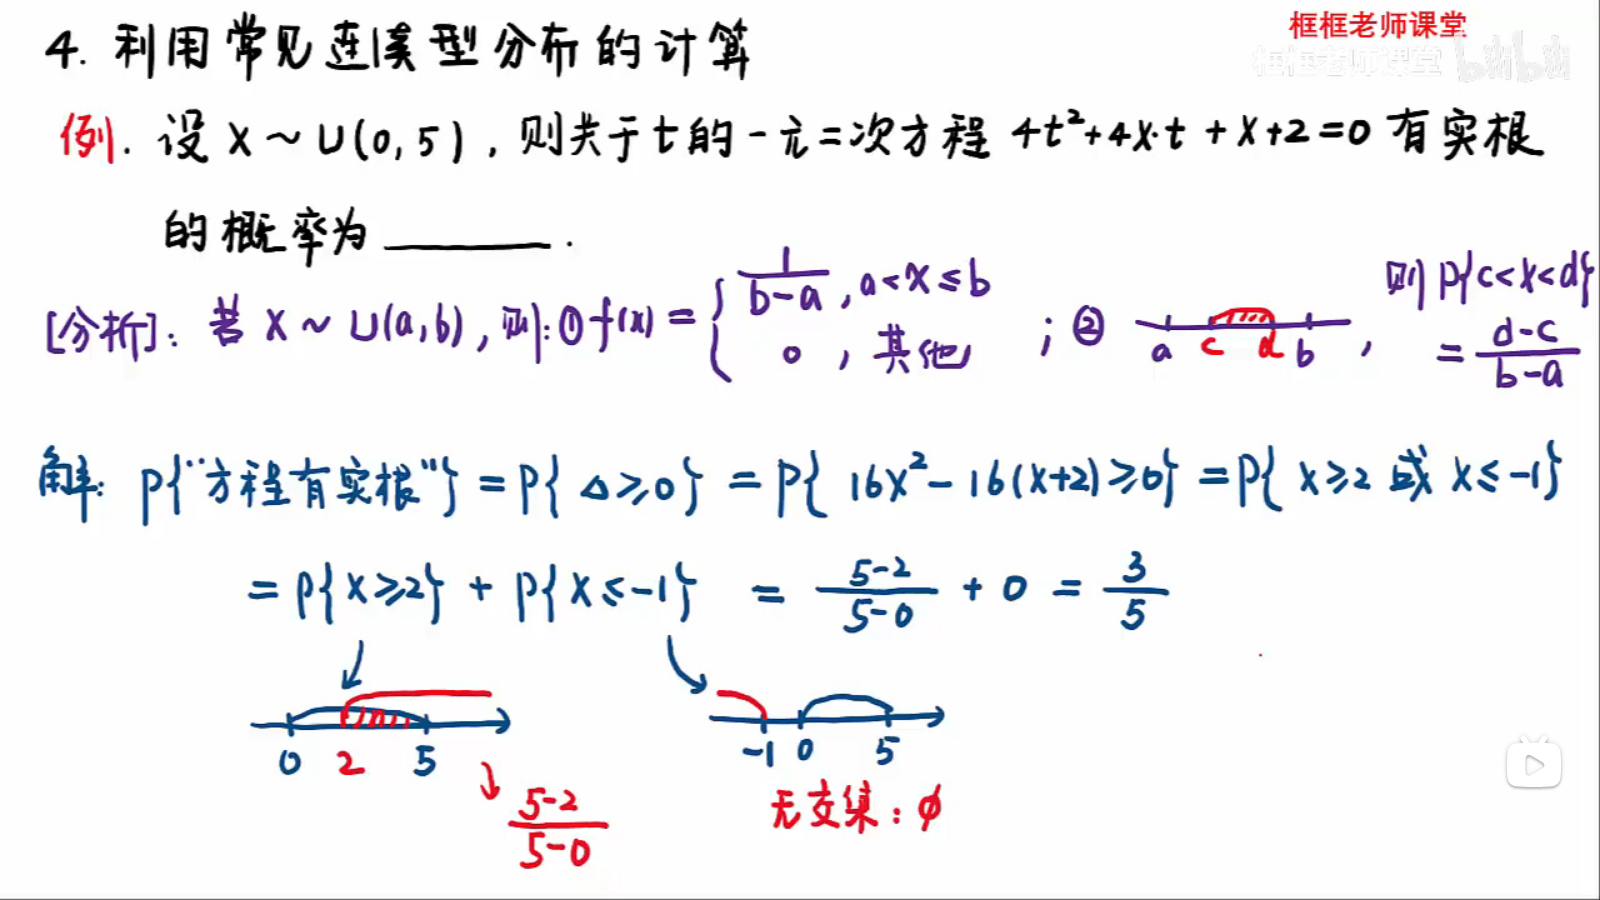 框框老师课堂
框框老师课堂 bilibili
4. 利用常见连续型分布的计算
例. 设 X ~ U(0, 5), 则关于 t 的一元二次方程 4t²+4X·t + X+2=0 有实根
的概率为 ______ .
[分析]: 若 X ~ U(a, b), 则: ① f(x) = { 1/(b-a), a<x≤b ; 0, 其他 ; ② a c d b , 则 P{c<X<d} = (d-c)/(b-a)
解: P{"方程有实根"} = P{ Δ≥0} = P{ 16X² - 16(X+2)≥0} = P{ X≥2 或 X≤-1}
= P{X≥2} + P{X≤-1} = (5-2)/(5-0) + 0 = 3/5
0 2 5
-1 0 5
(5-2)/(5-0)
无交集: ∅